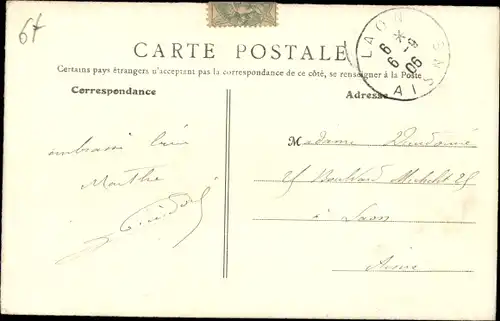 6f
CARTE POSTALE
Certains pays étrangers n'acceptant pas la correspondance de ce côté, se renseigner à la Poste
Correspondance
Adresse
LAON
6 * 8
6 06
AISNE
Madame Dieudonné
25 Boulevard Michelet 25
à Laon
Aisne
Marthe